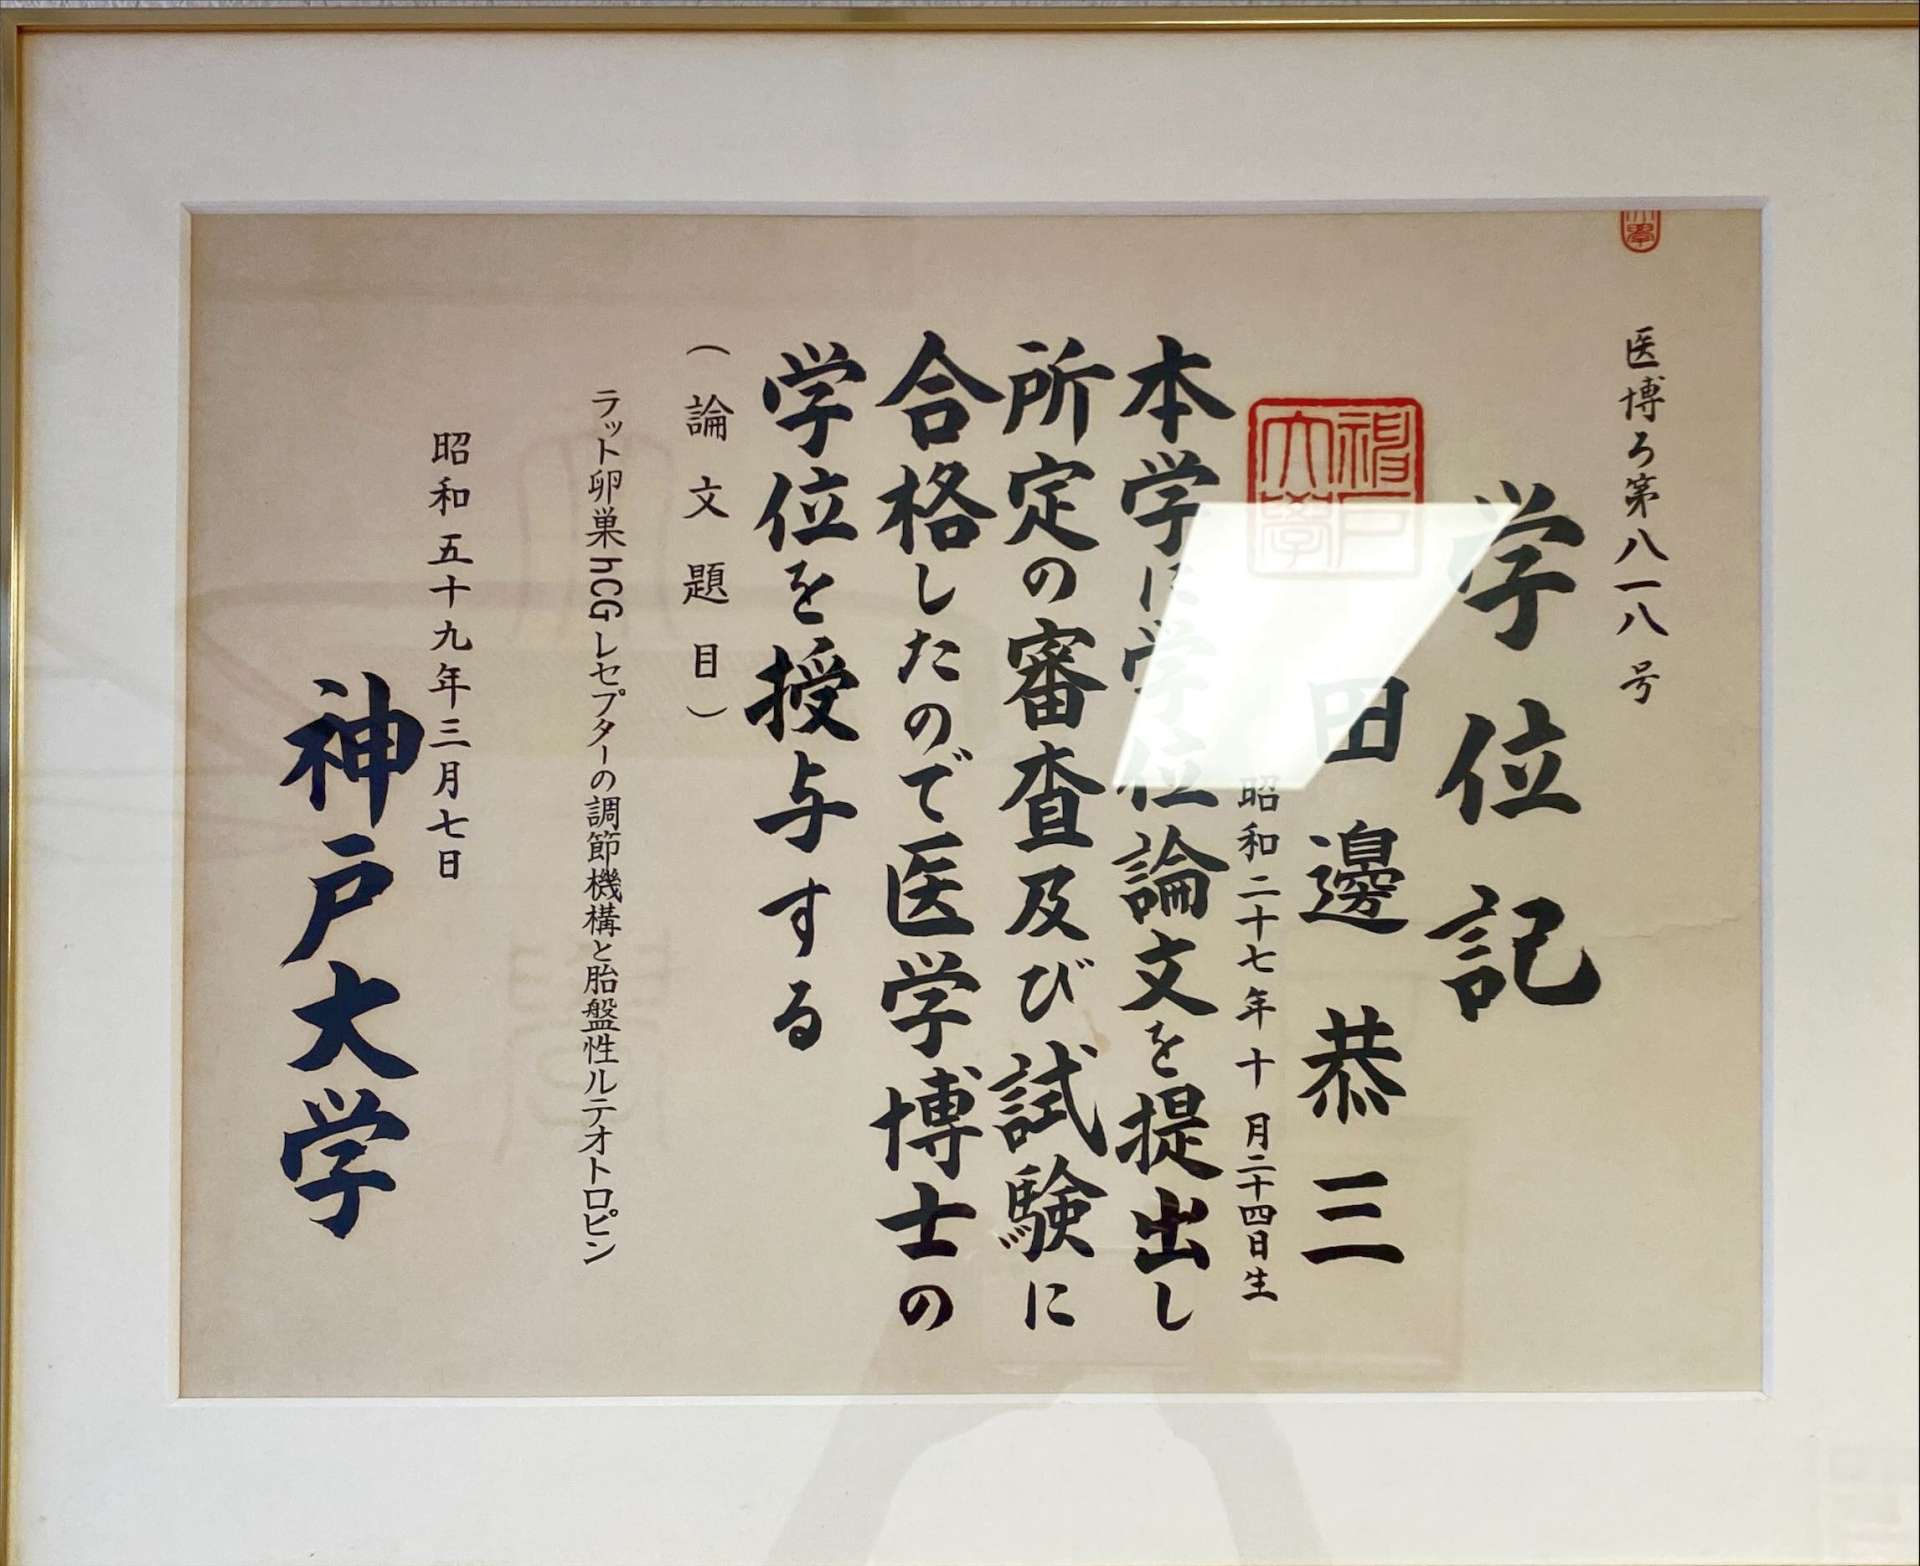 医博ろ第八一八号
学位記
田邊恭三
昭和二十七年十月二十四日生
本学に学位論文を提出し
所定の審査及び試験に
合格したので医学博士の
学位を授与する
(論文題目)
ラット卵巣hCGレセプターの調節機構と胎盤性ルテオトロピン
昭和五十九年三月七日
神戸大学
神戸
大學